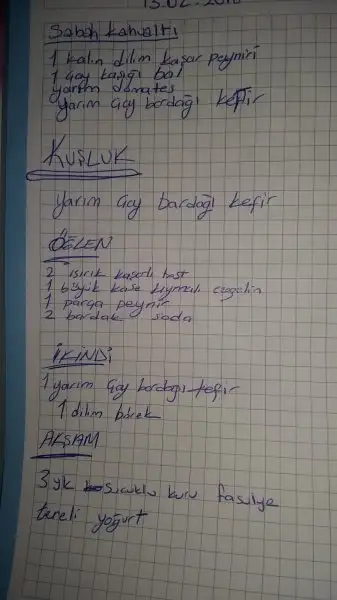 13.02.2018
Sabah kahvaltı
1 kalın dilim kaşar peyniri
1 çay kaşığı bal
yarım domates
yarım çay bardağı kefir
KUŞLUK
yarım çay bardağı kefir
ÖĞLEN
2 ısırık kaşarlı tost
1 büyük kase kıymalı
1 parça peynir
2 bardak soda
İKİNDİ
1 yarım çay bardağı kefir
1 dilim börek
AKŞAM
3 yk sucuklu kuru fasulye
tereli yoğurt